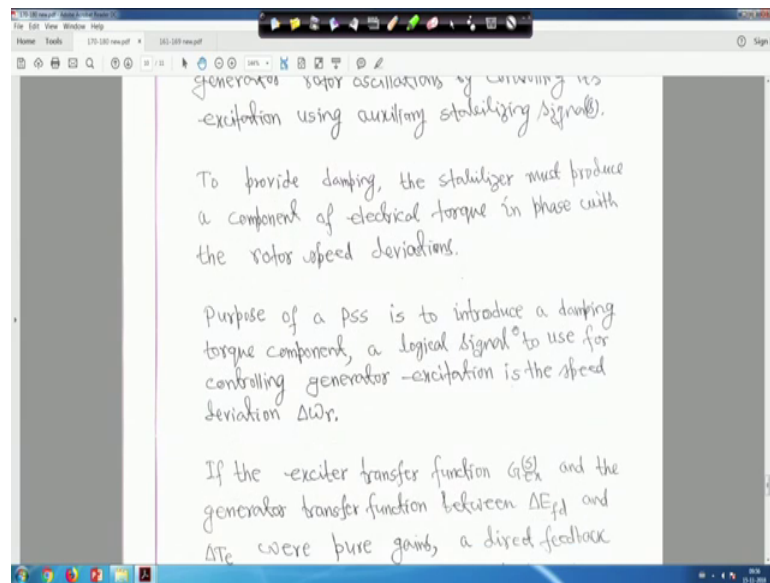 170-180 new.pdf - Adobe Acrobat Reader DC
File Edit View Window Help
Home Tools 170-180 new.pdf × 161-169 new.pdf Sign
10 / 11
generator rotor oscillations by controlling its
excitation using auxiliary stabilizing signal(s).
To provide damping, the stabilizer must produce
a component of electrical torque in phase with
the rotor speed deviations.
Purpose of a PSS is to introduce a damping
torque component, a logical signal to use for
controlling generator excitation is the speed
deviation Δωr.
If the exciter transfer function Gex(s) and the
generator transfer function between ΔEfd and
ΔTe were pure gains, a direct feedback